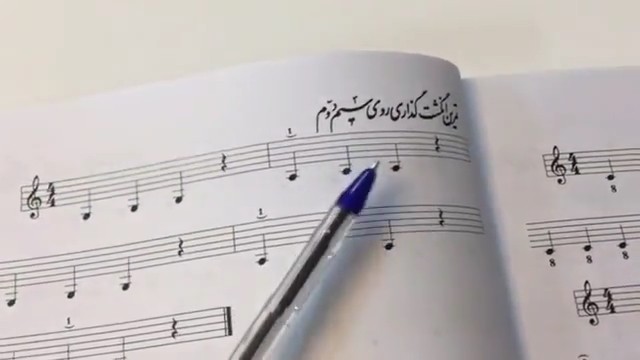 تمرین انگشت گذاری روی سیم دوّم
4
4
4
4
8
8 8 8
4
4